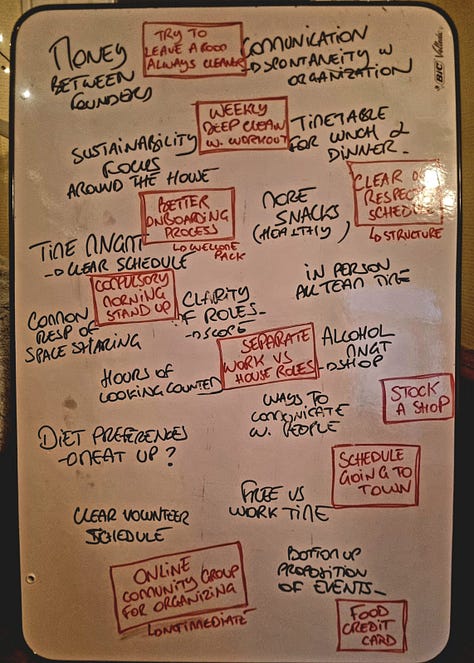 MONEY
BETWEEN
FOUNDERS
TRY TO
LEAVE A ROOM
ALWAYS CLEANER
COMMUNICATION
→ SPONTANEITY W
ORGANIZATION
BIC Velleda
SUSTAINABILITY
FOCUS
AROUND THE HOUSE
WEEKLY
DEEP CLEAN
W. WORKOUT
TIMETABLE
FOR LUNCH &
DINNER
BETTER
ONBOARDING
PROCESS
↳ WELCOME
PACK
MORE
SNACKS
(HEALTHY)
CLEAR
RESPECT
SCHEDULE
↳ STRUCTURE
TIME MNGMT
→ CLEAR SCHEDULE
COMPULSORY
MORNING
STAND UP
CLARITY
OF ROLES
→ SCOPE
IN PERSON
ALL TEAM TIME
COMMON
RESP OF
SPACE SHARING
SEPARATE
WORK VS
HOUSE ROLES
ALCOHOL
MNGT
→ SHOP
HOURS OF
COOKING COUNTED
WAYS TO
COMMUNICATE
W. PEOPLE
STOCK
A SHOP
DIET PREFERENCES
→ MEAT UP?
SCHEDULE
GOING TO
TOWN
FREE VS
WORK TIME
CLEAR VOLUNTEER
SCHEDULE
ONLINE
COMUNITY GROUP
FOR ORGANIZING
BOTTOM UP
PROPOSITION
OF EVENTS
FOOD
CREDIT
CARD